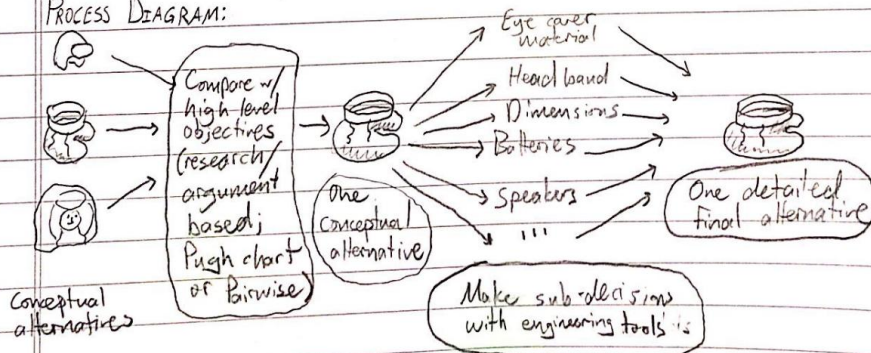 PROCESS DIAGRAM:
Conceptual
alternatives
Compare w/
high level
objectives
(research/
argument
based;
Pugh chart
or Pairwise)
One
conceptual
alternative
Eye cover
material
Head band
Dimensions
Batteries
Speakers
...
Make sub-decisions
with engineering tools
One detailed
final alternative